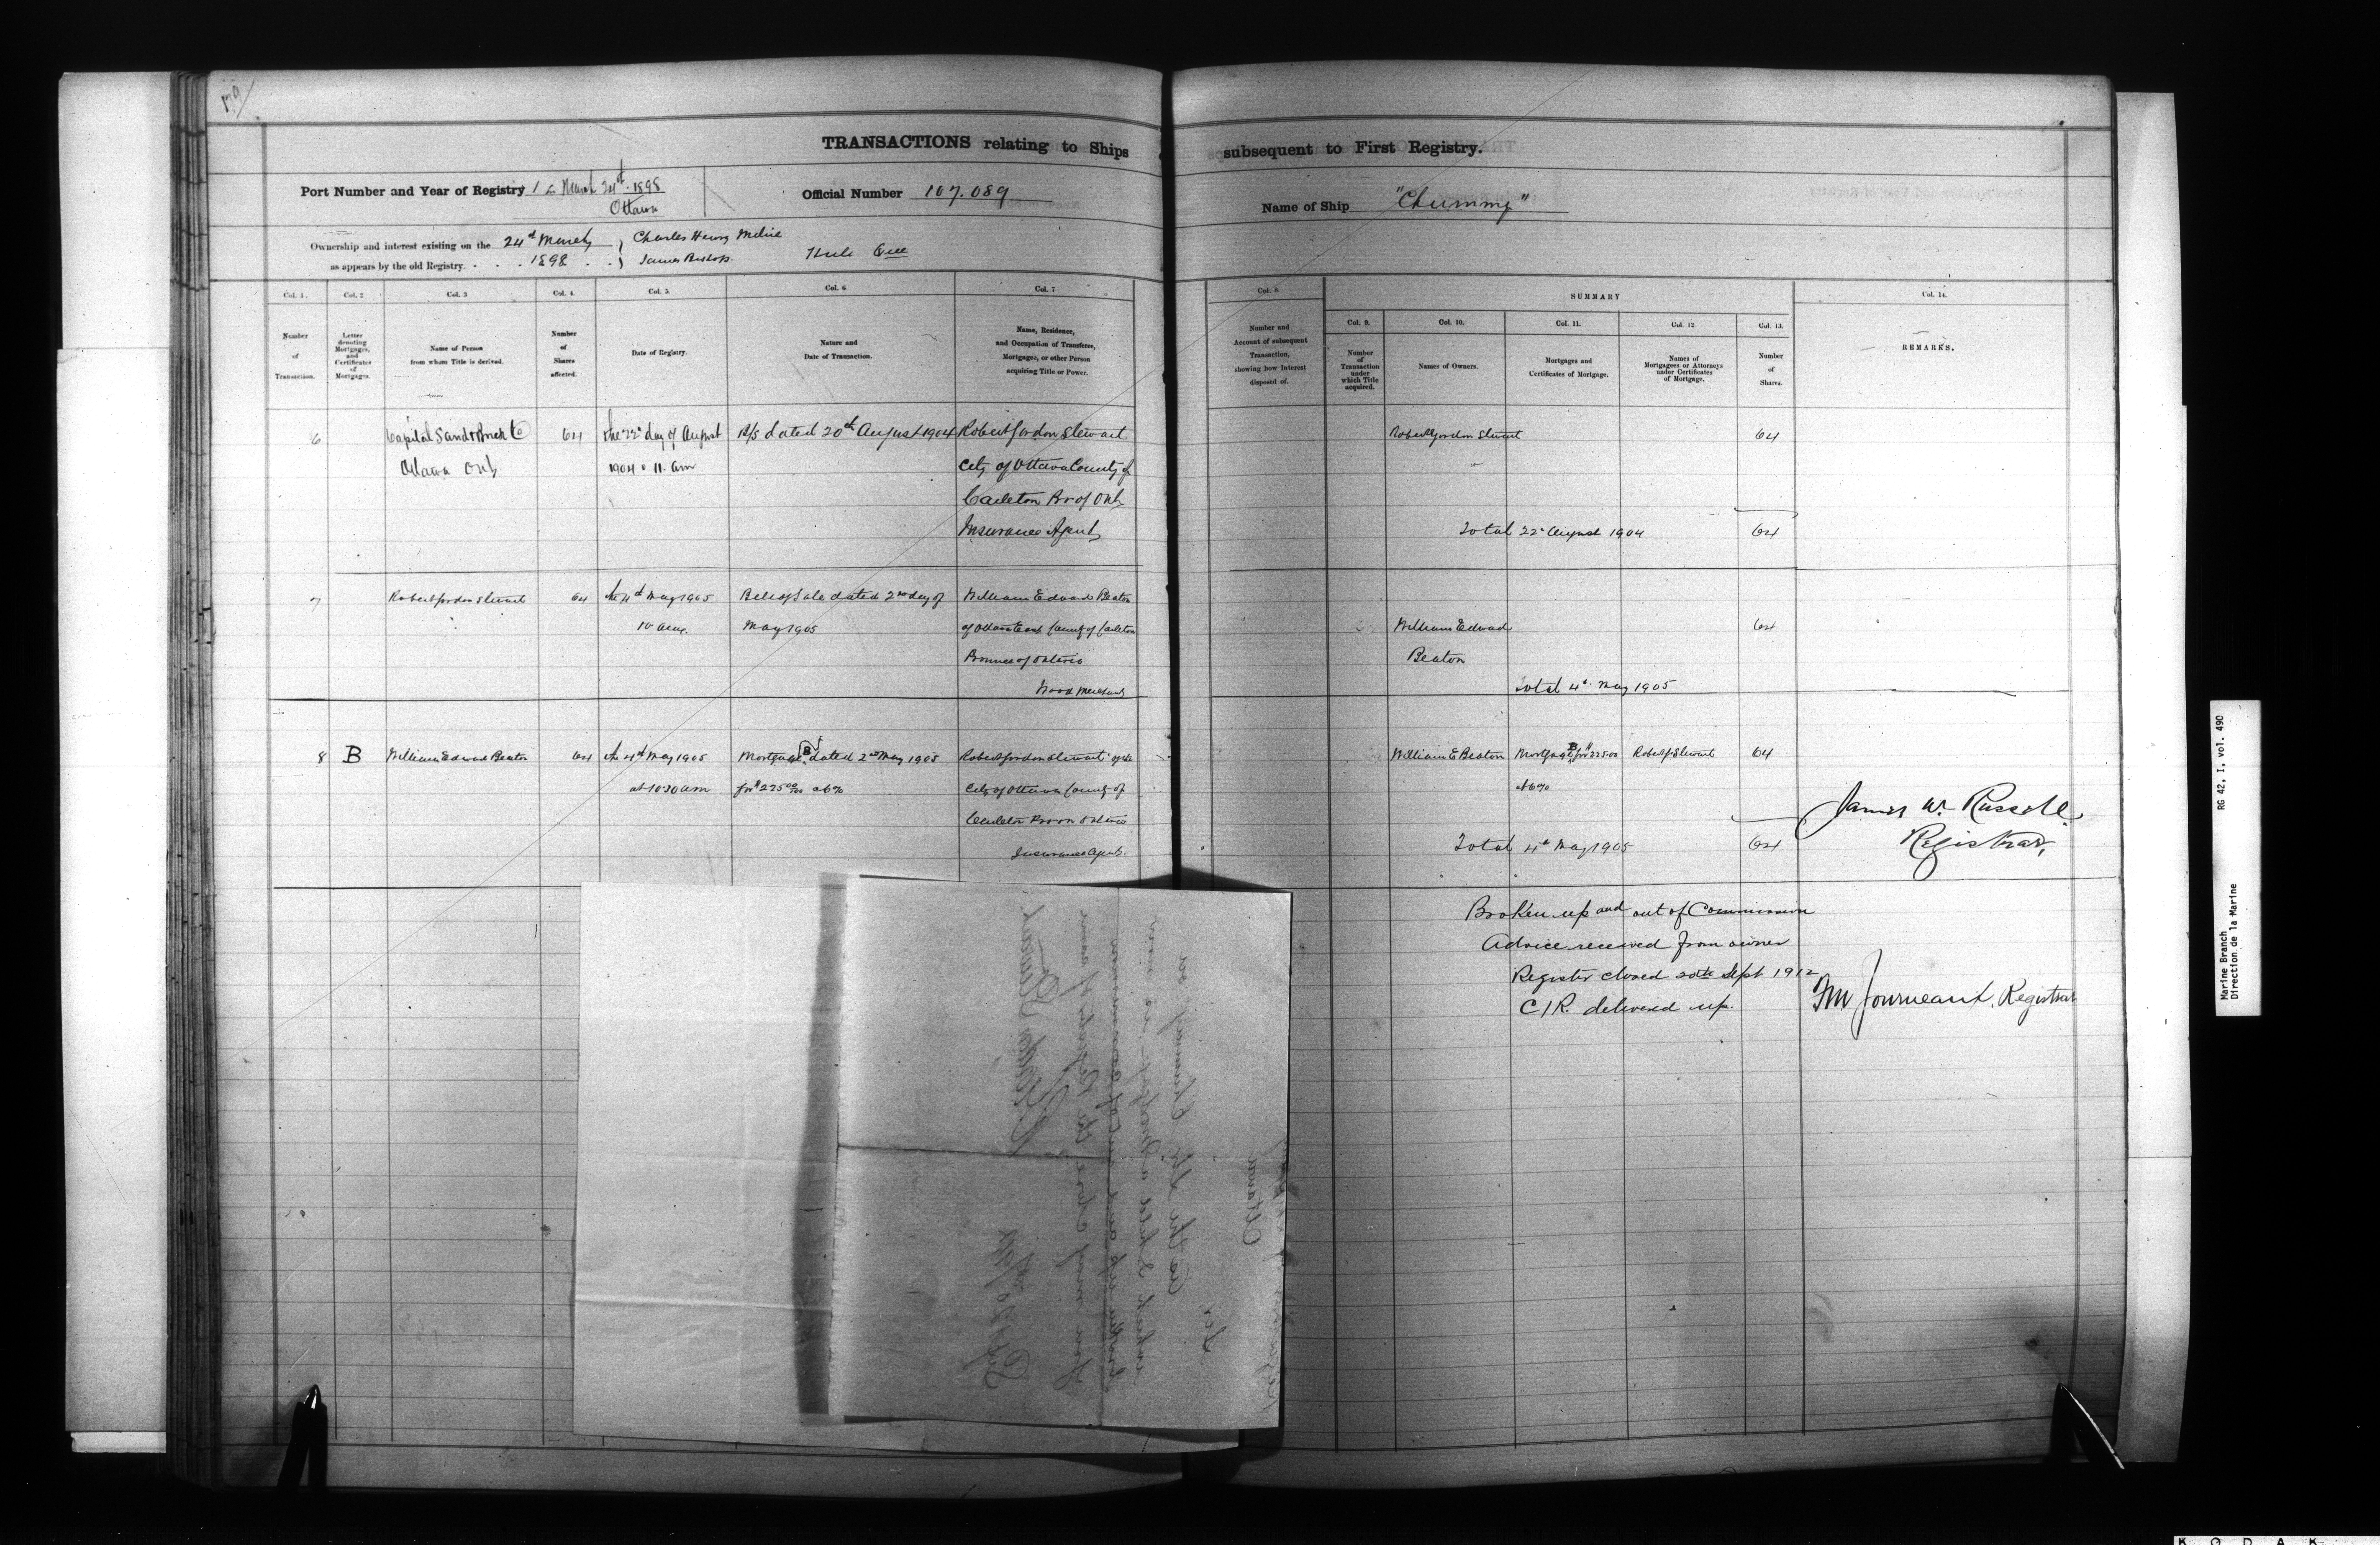 TRANSACTIONS relating to Ships subsequent to First Registry.
Port Number and Year of Registry 1 March 24th 1898
Ottawa
Official Number 107.089
Name of Ship "Chummy"
Ownership and interest existing on the 24th March
as appears by the old Registry. . . . 1898 . .
Charles Henry Milne
James Bishop.
Hull Que
Col. 1.
Number
of
Transaction.
Col. 2
Letter
denoting
Mortgages,
and
Certificates
of
Mortgages.
Col. 3
Name of Person
from whom Title is derived.
Col. 4.
Number
of
Shares
affected.
Col. 5.
Date of Registry.
Col. 6
Nature and
Date of Transaction.
Col. 7
Name, Residence,
and Occupation of Transferee,
Mortgagee, or other Person
acquiring Title or Power.
Col. 8
Number and
Account of subsequent
Transaction,
showing how Interest
disposed of.
SUMMARY
Col. 9.
Number
of
Transaction
under
which Title
acquired.
Col. 10.
Names of Owners.
Col. 11.
Mortgages and
Certificates of Mortgage.
Col. 12
Names of
Mortgagees or Attorneys
under Certificates
of Mortgage.
Col. 13.
Number
of
Shares.
Col. 14.
REMARKS.
6
Capital Sand & Brick Co
Ottawa Ont
64
the 22d day of August
1904 11. am
B/S dated 20th August 1904
Robert Gordon Stewart
City of Ottawa County of
Carleton Pr of Ont
Insurance Agent
Robert Gordon Stewart
64
Total 22d August 1904
64
7
Robert Gordon Stewart
64
the 4th May 1905
10 am.
Bill of Sale dated 2nd day of
May 1905
William Edward Beaton
of Ottawa East County of Carleton
Province of Ontario
Wood Merchant
William Edward
Beaton
64
Total 4th May 1905
8
B
William Edward Beaton
64
the 4th May 1905
at 10 30 am
Mortgage B dated 2nd May 1905
for $225 00/100 at 6%
Robert Gordon Stewart of the
City of Ottawa County of
Carleton Prov Ontario
Insurance Agent.
William E Beaton
Mortgage B for $225.00
at 6%
Robert G Stewart
64
Total 4th May 1905
64
James W. Russell
Registrar,
Broken up and out of Commission
Advice received from owner
Register closed 20th Sept 1912
C/R. delivered up.
Journeaux, Registrar
Ottawa
Sir
As the Str Chummy on
which I held a Mortgage, is now
broken up and out of commission
you may close the Registry of same
Sept 20/1912
Marine Branch RG 42, I, vol. 490
Direction de la Marine
KODAK